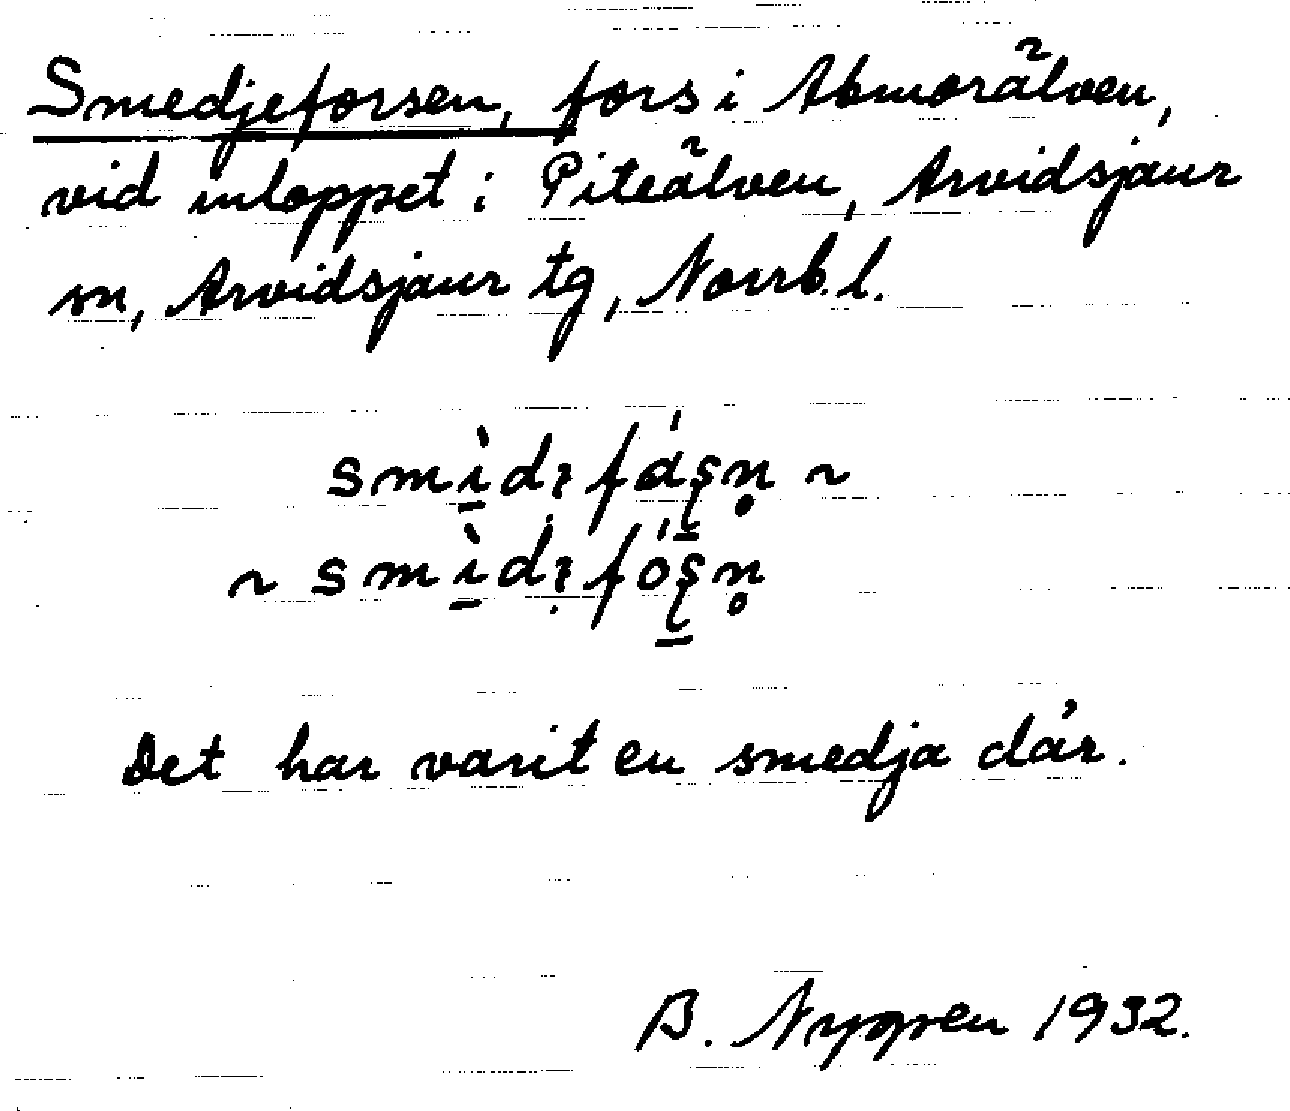 Smedjeforsen, fors i Abmorälven,
vid inloppet i Piteälven, Arvidsjaur
sn, Arvidsjaur tg, Norrb. l.
Det har varit en smedja där.
B. Nygren 1932.